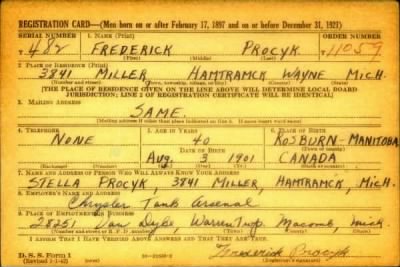 REGISTRATION CARD—(Men born on or after February 17, 1897 and on or before December 31, 1921)
SERIAL NUMBER 1. NAME (Print) ORDER NUMBER
T 482 FREDERICK PROCYK T11059
(First) (Middle) (Last)
2. PLACE OF RESIDENCE (Print)
3841 MILLER HAMTRAMCK WAYNE MICH.
(Number and street) (Town, township, village, or city) (County) (State)
[THE PLACE OF RESIDENCE GIVEN ON THE LINE ABOVE WILL DETERMINE LOCAL BOARD
JURISDICTION; LINE 2 OF REGISTRATION CERTIFICATE WILL BE IDENTICAL]
3. MAILING ADDRESS
SAME.
[Mailing address if other than place indicated on line 2. If same insert word same]
4. TELEPHONE 5. AGE IN YEARS 6. PLACE OF BIRTH
NONE 40 ROSBURN-MANITOBA
DATE OF BIRTH (Town or county)
AUG. 3 1901 CANADA
(Mo.) (Day) (Yr.) (State or country)
7. NAME AND ADDRESS OF PERSON WHO WILL ALWAYS KNOW YOUR ADDRESS
STELLA PROCYK, 3841 MILLER, HAMTRAMCK, MICH.
8. EMPLOYER'S NAME AND ADDRESS
Chrysler Tank Arsenal
9. PLACE OF EMPLOYMENT OR BUSINESS
28251 Van Dyke, Warren Twp. Macomb, Mich.
(Number and street or R. F. D. number) (Town) (County) (State)
I AFFIRM THAT I HAVE VERIFIED ABOVE ANSWERS AND THAT THEY ARE TRUE.
D. S. S. Form 1 Frederick Procyk